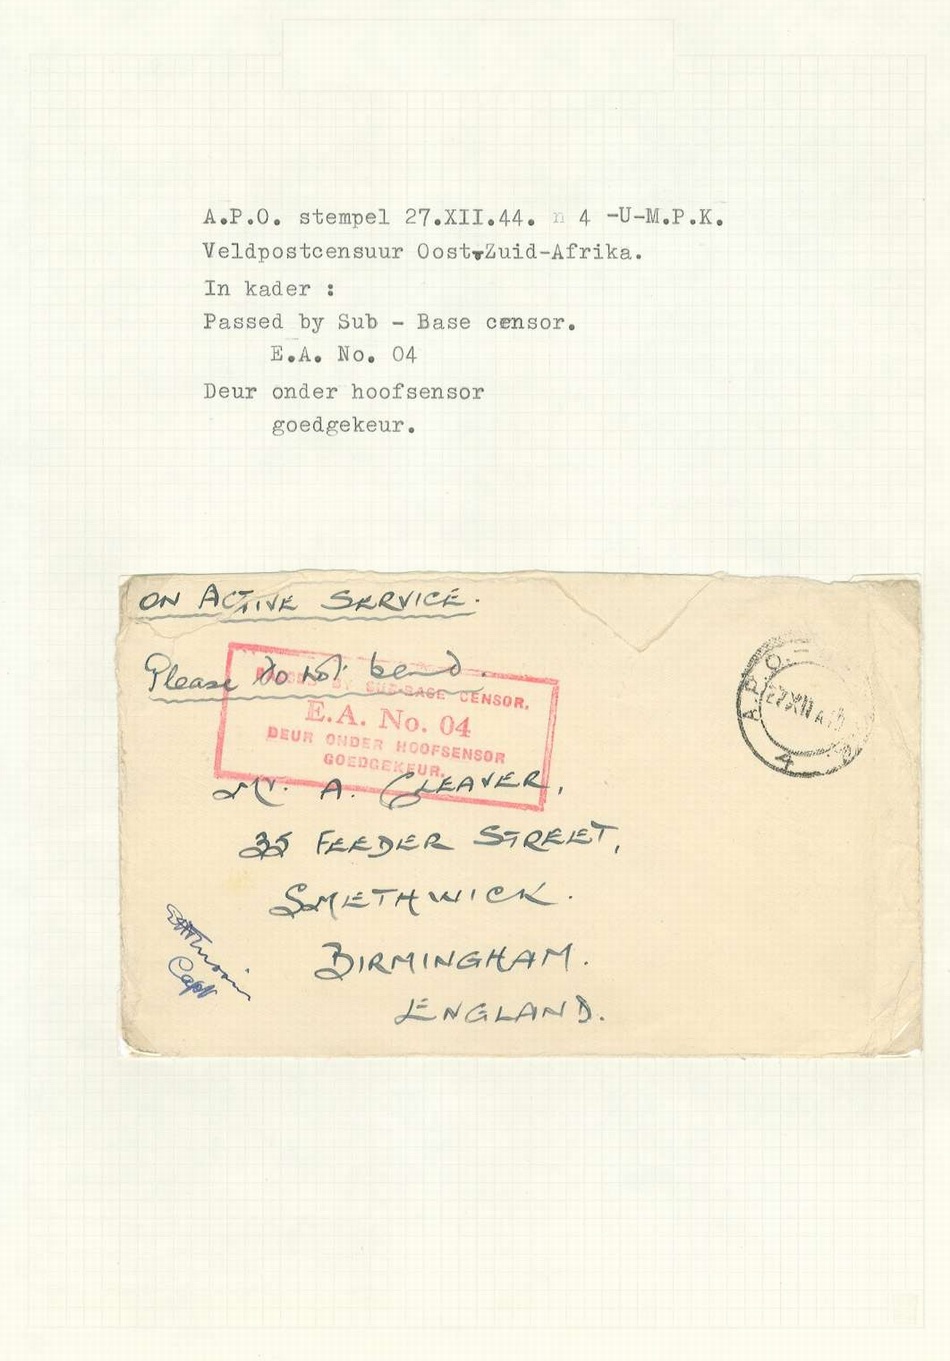 A.P.O. stempel 27.XII.44. n 4 -U-M.P.K.
Veldpostcensuur Oost-Zuid-Afrika.
In kader :
Passed by Sub - Base censor.
E.A. No. 04
Deur onder hoofsensor
goedgekeur.
ON ACTIVE SERVICE.
Please do not bend.
PASSED BY SUB-BASE CENSOR.
E.A. No. 04
DEUR ONDER HOOFSENSOR
GOEDGEKEUR.
A.P.O.–
27 XII
4
Mr. A. CLEAVER,
35 FEEDER STREET,
SMETHWICK.
BIRMINGHAM.
ENGLAND.
Capt